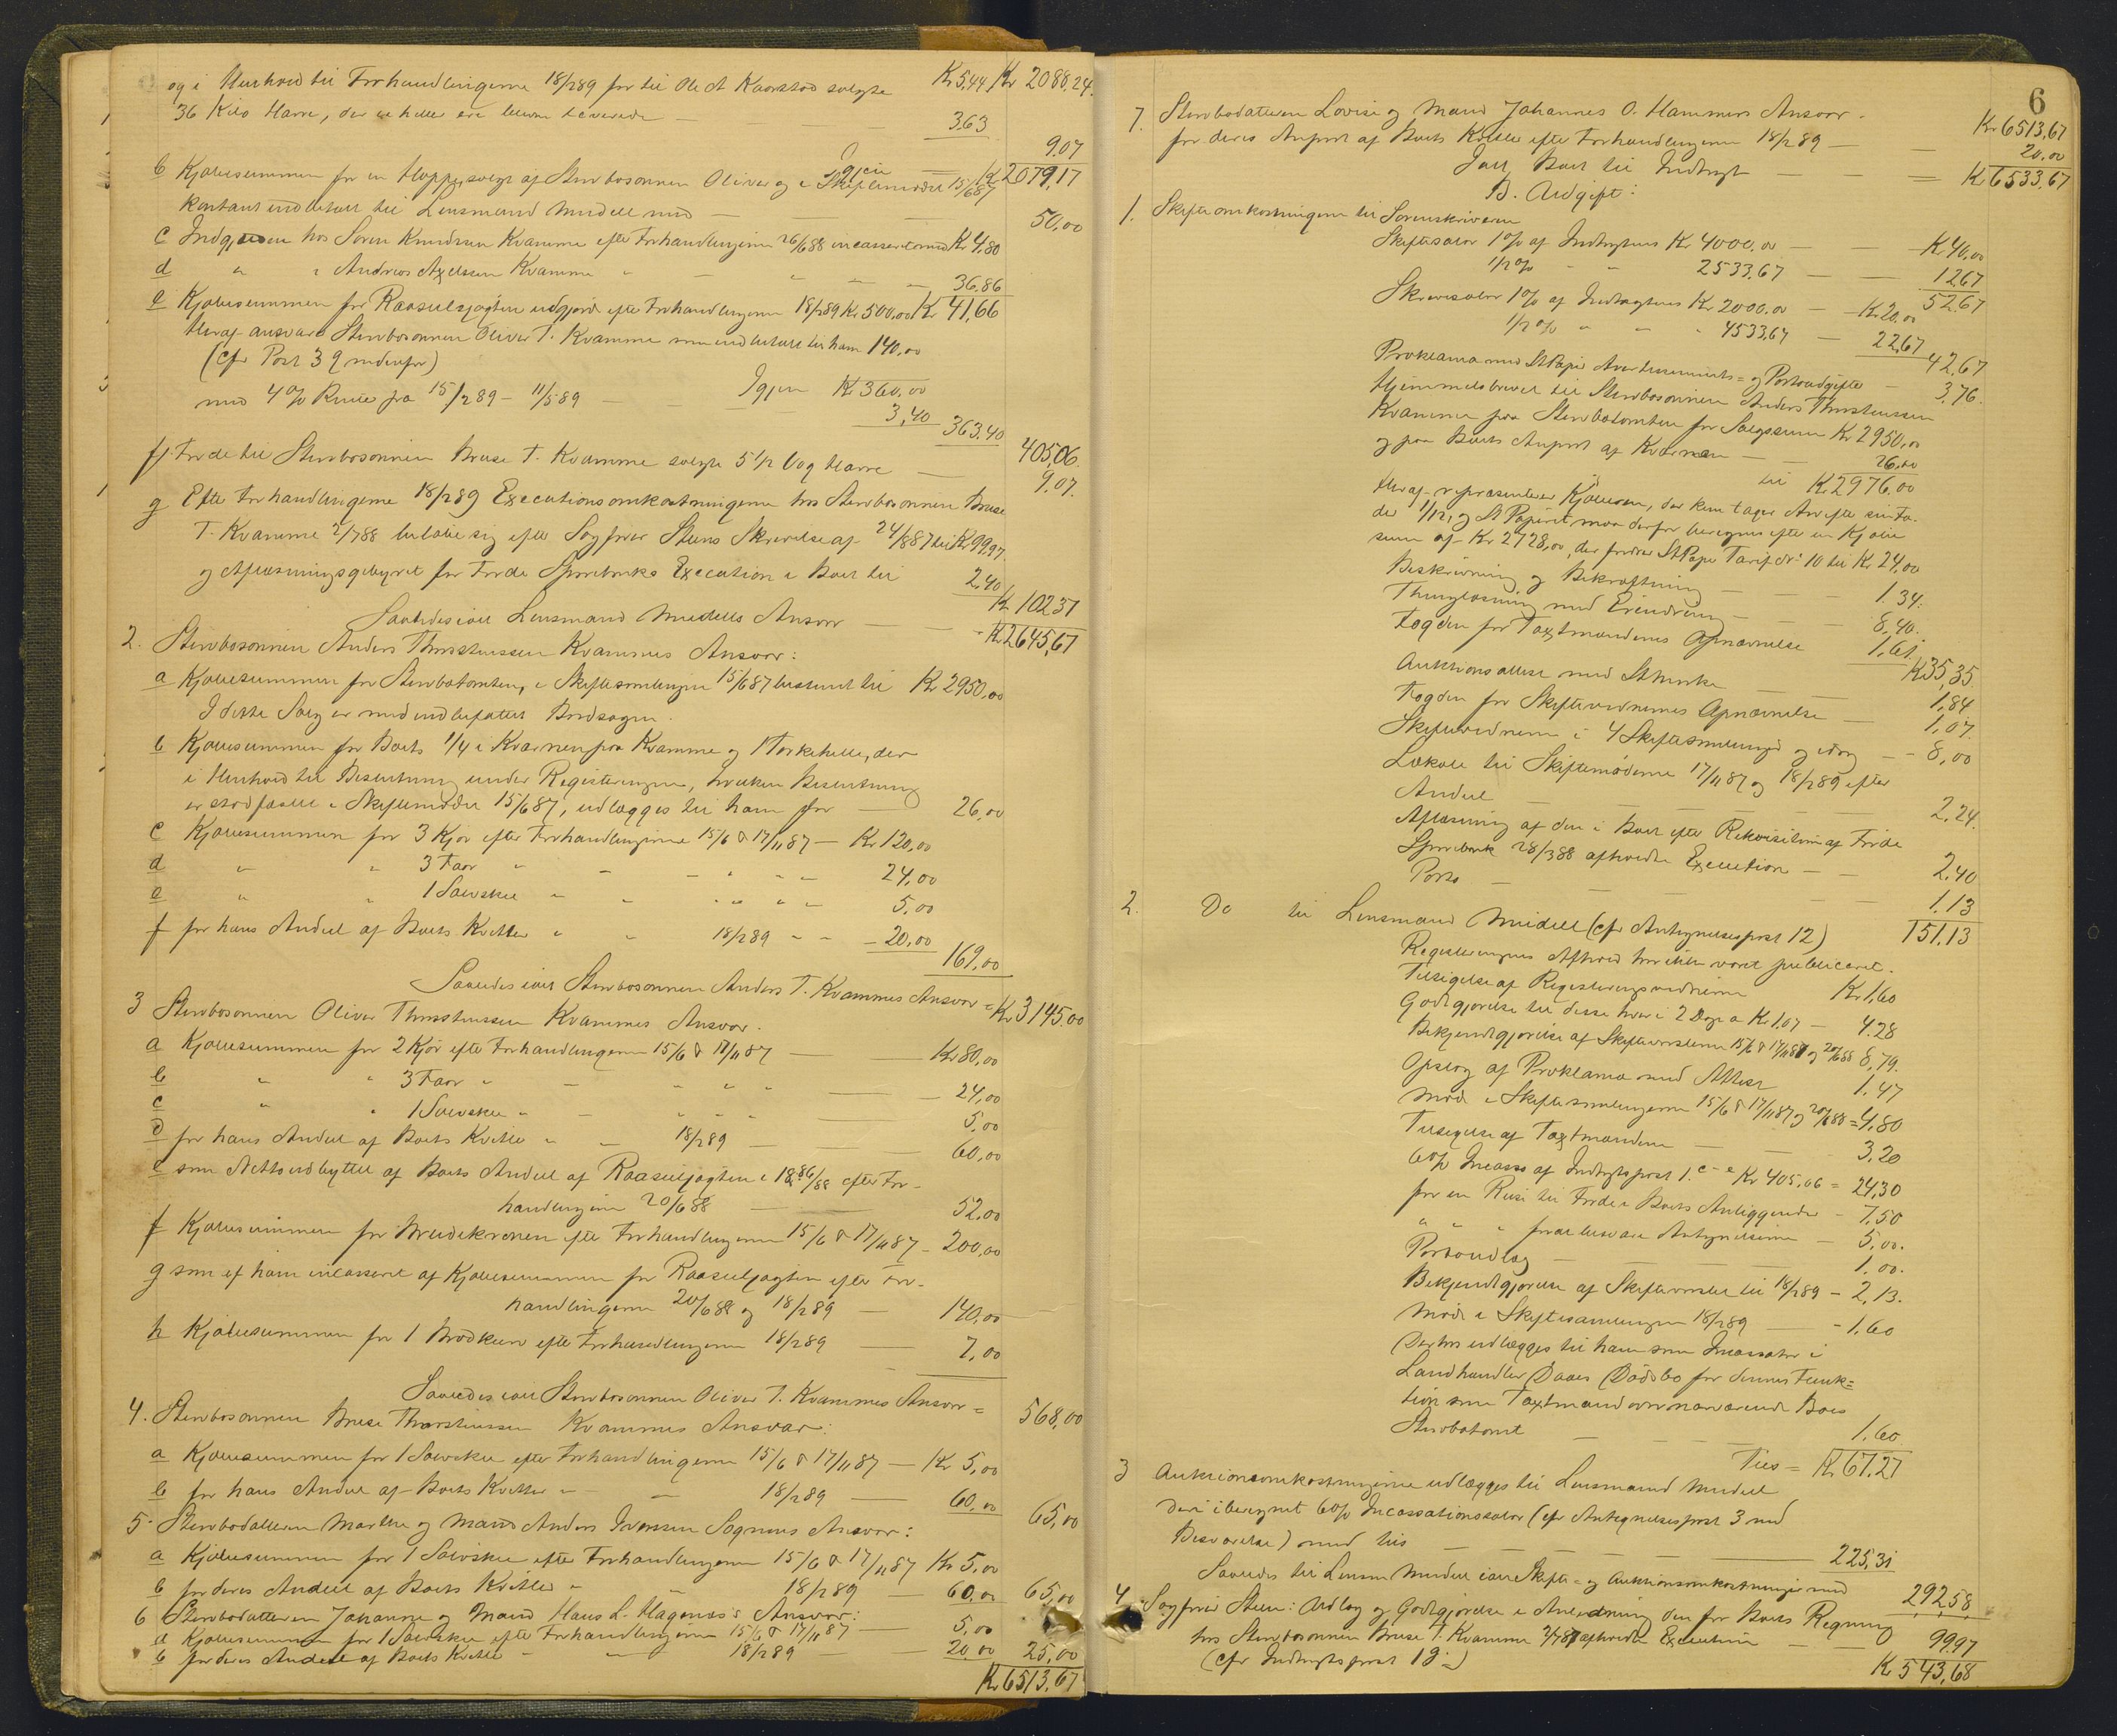 og i Henhold til Forhandlingerne 18/2 89 for til Ole A Kaarstad solgte Kr 5,44 Kr 2088,24.
36 Kilo Harre, der ei heller ere blevne leverede — 3.63
9,07
Igjen Kr 2079,17
b Kjøbesummen for en Hoppe, solgt af Stervbosønnen Oliver og i Skiftemødet 15/6 87
kontant indbetalt til Lensmand Meidell med — 50,00
c Indgjæld hos Søren Knudssen Kvamme efter Forhandlingerne 26/6 88 incasseret med Kr 4,80
d " " Andreas Axelssen Kvamme " — " — 36.86
Kr 41,66
e Kjøbesummen for Raaseiljagten udgjorde efter Forhandlingerne 18/2 89 Kr 500,00
Heraf ansvares Stervbosønnen Oliver T. Kvamme som indbetalt til ham 140,00
(cfr Post 3 g nedenfor)
Igjen Kr 360,00
med 4% Rente fra 15/2 89 – 11/5 89 — 3,40
363.40
405,06.
f. Førde til Stervbosønnen Bruse T. Kvamme solgte 5 1/2 Vog Harre — 9,07.
g Efter Forhandlingerne 18/2 89 Executionsomkostningerne hos Stervbosønnen Bruse
T. Kvamme 2/7 88 beløbe sig efter Sagfører Steens Skrivelse af 24/8 87 til Kr 99,97.
og Aflæsningsgebyret for Førde Sparebanks Execution i Boet til 2,40
Kr 102,37
Saaledes ialt Lensmand Meidells Ansvar — Kr 2645,67
2. Stervbosønnen Anders Thorsteinssen Kvammes Ansvar:
a Kjøbesummen for Stervbotomten, i Skiftesamlingen 15/6 87 bestemt til Kr 2950,00
I dette Salg er med indbefattet Bordsagen.
b Kjøbesummen for Boets 1/4 i Kværnen paa Kvamme og Tørkehelle, der
i Henhold til Beslutning under Registeringen, hvilken Beslutning
er stadfæstet i Skiftemødet 15/6 87, udlægges til ham for — 26,00
c Kjøbesummen for 3 Kjør efter Forhandlingerne 15/6 & 17/11 87 — Kr 120,00
d " " 3 Faar " — " " 24,00
e " " 1 Sølvskee " " " " 5,00
f for hans Andeel af Boets Kvitler " " 18/2 89 " – 20,00
169,00
Saaledes ialt Stervbosønnen Anders T. Kvammes Ansvar = Kr 3145.00
3 Stervbosønnen Oliver Thorsteinssen Kvammes Ansvar.
a Kjøbesummen for 2 Kjør efter Forhandlingerne 15/6 & 17/11 87 — Kr 80,00
b " " 3 Faar " — " " " 24,00
c " " 1 Sølvskee " — " " " 5,00
d for hans Andeel af Boets Kvitler " — 18/2 89 — 60,00
e som Nettoudbyttet af Boets Andeel af Raaseiljagten i 1886/88 efter For-
handlingerne 20/6 88 — 52,00
f Kjøbesummen for Brudekronen efter Forhandlingerne 15/6 & 17/11 87 – 200,00
g som af ham incasseret af Kjøbesummen for Raaseiljagten efter For-
handlingerne 20/6 88 og 18/2 89 — 140,00
h Kjøbesummen for 1 Brødkurv efter Forhandlingerne 18/2 89 — 7,00
Saaledes ialt Stervbosønnen Oliver T. Kvammes Ansvar = 568,00
4. Stervbosønnen Bruse Thorsteinssen Kvammes Ansvar:
a Kjøbesummen for 1 Sølvskee efter Forhandlingerne 15/6 & 17/11 87 — Kr 5,00
b for hans Andeel af Boets Kvitler " — 18/2 89 — 60,00
65,00
5. Stervbodatteren Marthe og Mand Anders Iverssen Sognnes Ansvar:
a Kjøbesummen for 1 Sølvskee efter Forhandlingerne 15/6 & 17/11 87 Kr 5,00
b for deres Andeel af Boets Kvitler " " 18/2 89 60,00 65,00
6 Stervbodatteren Johanne og Mand Hans L. Hagenæs's Ansvar:
a Kjøbesummen for 1 Sølvskee efter Forhandlingerne 15/6 & 17/11 87 — 5,00
b for deres Andeel af Boets Kvitler " — 18/2 89 — 20,00 25,00
Kr 6513,67
6
Kr 6513,67
7. Stervbodatteren Lovise og Mand Johannes O. Hammers Ansvar.
for deres Anpart af Boets Kvitler efter Forhandlingerne 18/2 89 — 20,00
Ialt Boet til Indtægt — Kr 6533,67
B. Udgift:
1. Skifteomkostningerne til Sorenskriveren
Skiftesalær 1% af Indtægtens Kr 4000,00 — Kr 40,00
1/2% " " 2533,67 — 12,67
52,67
Skriversalær 1% af Indtægtens Kr 2000,00 — Kr 20,00
1/2% " " " 4533,67 — 22,67
42,67
Proklama med St Papir Avertissements- og Portoudgifter — 3,76.
Hjemmelsbrevet til Stervbosønnen Anders Thorsteinssen
Kvamme paa Stervbotomten for Salgssum Kr 2950,00
og paa Boets Anpart af Kværnen — 26,00
til Kr 2976,00
Heraf repræsenterer Kjøberen, der kun tager Arv efter sin Fa-
der 1/12, og St Papiret maa derfor beregnes efter en Kjøbe
sum af Kr 2728,00, der fordrer St Papir Tarif No 10 til Kr 24,00
Beskrivning og Bekræftning — 1.34.
Thinglæsning med Erindring — 8,40.
Fogden for Taxtmændenes Opnævnelse 1,61.
Kr 35,35.
Auktionsattest med St Merke — 1,84
Fogden for Skiftevidnernes Opnævnelse — 1,07.
Skiftevidnerne i 4 Skiftesamlinger og idag — 8,00
Lokale til Skiftemøderne 17/11 87 og 18/2 89 efter
Andeel — 2,24.
Aflæsning af den i Boet efter Rekvisition af Førde
Sparebank 28/3 88 afholdte Execution — 2,40
Porto — 1.13
151,13
2. Do til Lensmand Meidell (cfr Antegnelsespost 12)
Registeringens Afhold har ikke været publiceret.
Tilsigelse af Registeringsvidnerne Kr 1,60
Godtgjørelse til disse hver i 2 Dage a Kr 1.07 — 4.28
Bekjendtgjørelse af Skiftesamlingerne 15/6 & 17/11 87 og 20/6 88 8,79.
Opslag af Proklama med Attest 1,47
Møde i Skiftesamlingerne 15/6 & 17/11 87 og 20/6 88 = 4,80
Tilsigelse af Taxtmændene — 3,20
6% Incasso af Indtægtspost 1. c–e Kr 405,06 = 24,30
for en Reise til Førde i Boets Anliggender – 7,50
" " " for at besvare Antegnelserne – 5,00.
Portoudlæg — 1,00.
Bekjendtgjørelse af Skiftesamling til 18/2 89 – 2,13.
Møde i Skiftesamlingen 18/2 89 — 1,60
Derhos udlægges til ham som Incassator i
Landhandler Daaes Dødsbo for dennes Funk-
tion som Taxtmand over nærværende Boes
Stervbotomt — 1,60
Tils = Kr 67,27
3 Auktionsomkostningerne udlægges til Lensmand Meidell
deri iberegnet 6% Incassationssalær (cfr Antegnelsespost 3 med
Besvarelse) med tils — 225,31
Saaledes til Lensm Meidell ialt Skifte- og Auktionsomkostninger med 292,58,
4. Sagfører Steen: Udlæg og Godtgjørelse i Anledning den for Boets Regning
hos Stervbosønnen Bruse T. Kvamme 2/7 87 afholdte Execution — 99,97
(cfr Indtægtspost 1 g.)
Kr 543,68